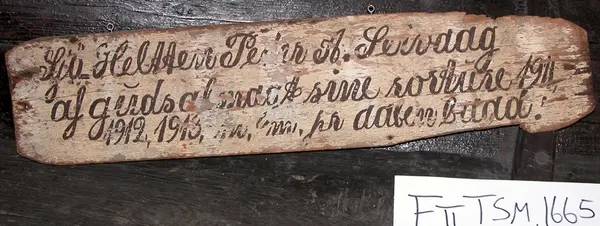 Sjö-Helten Peder A. Seivaag
af guds almagt sine rorkure 1911,
1912, 1913, m, m, pr daten Baad.
TSM, 1665